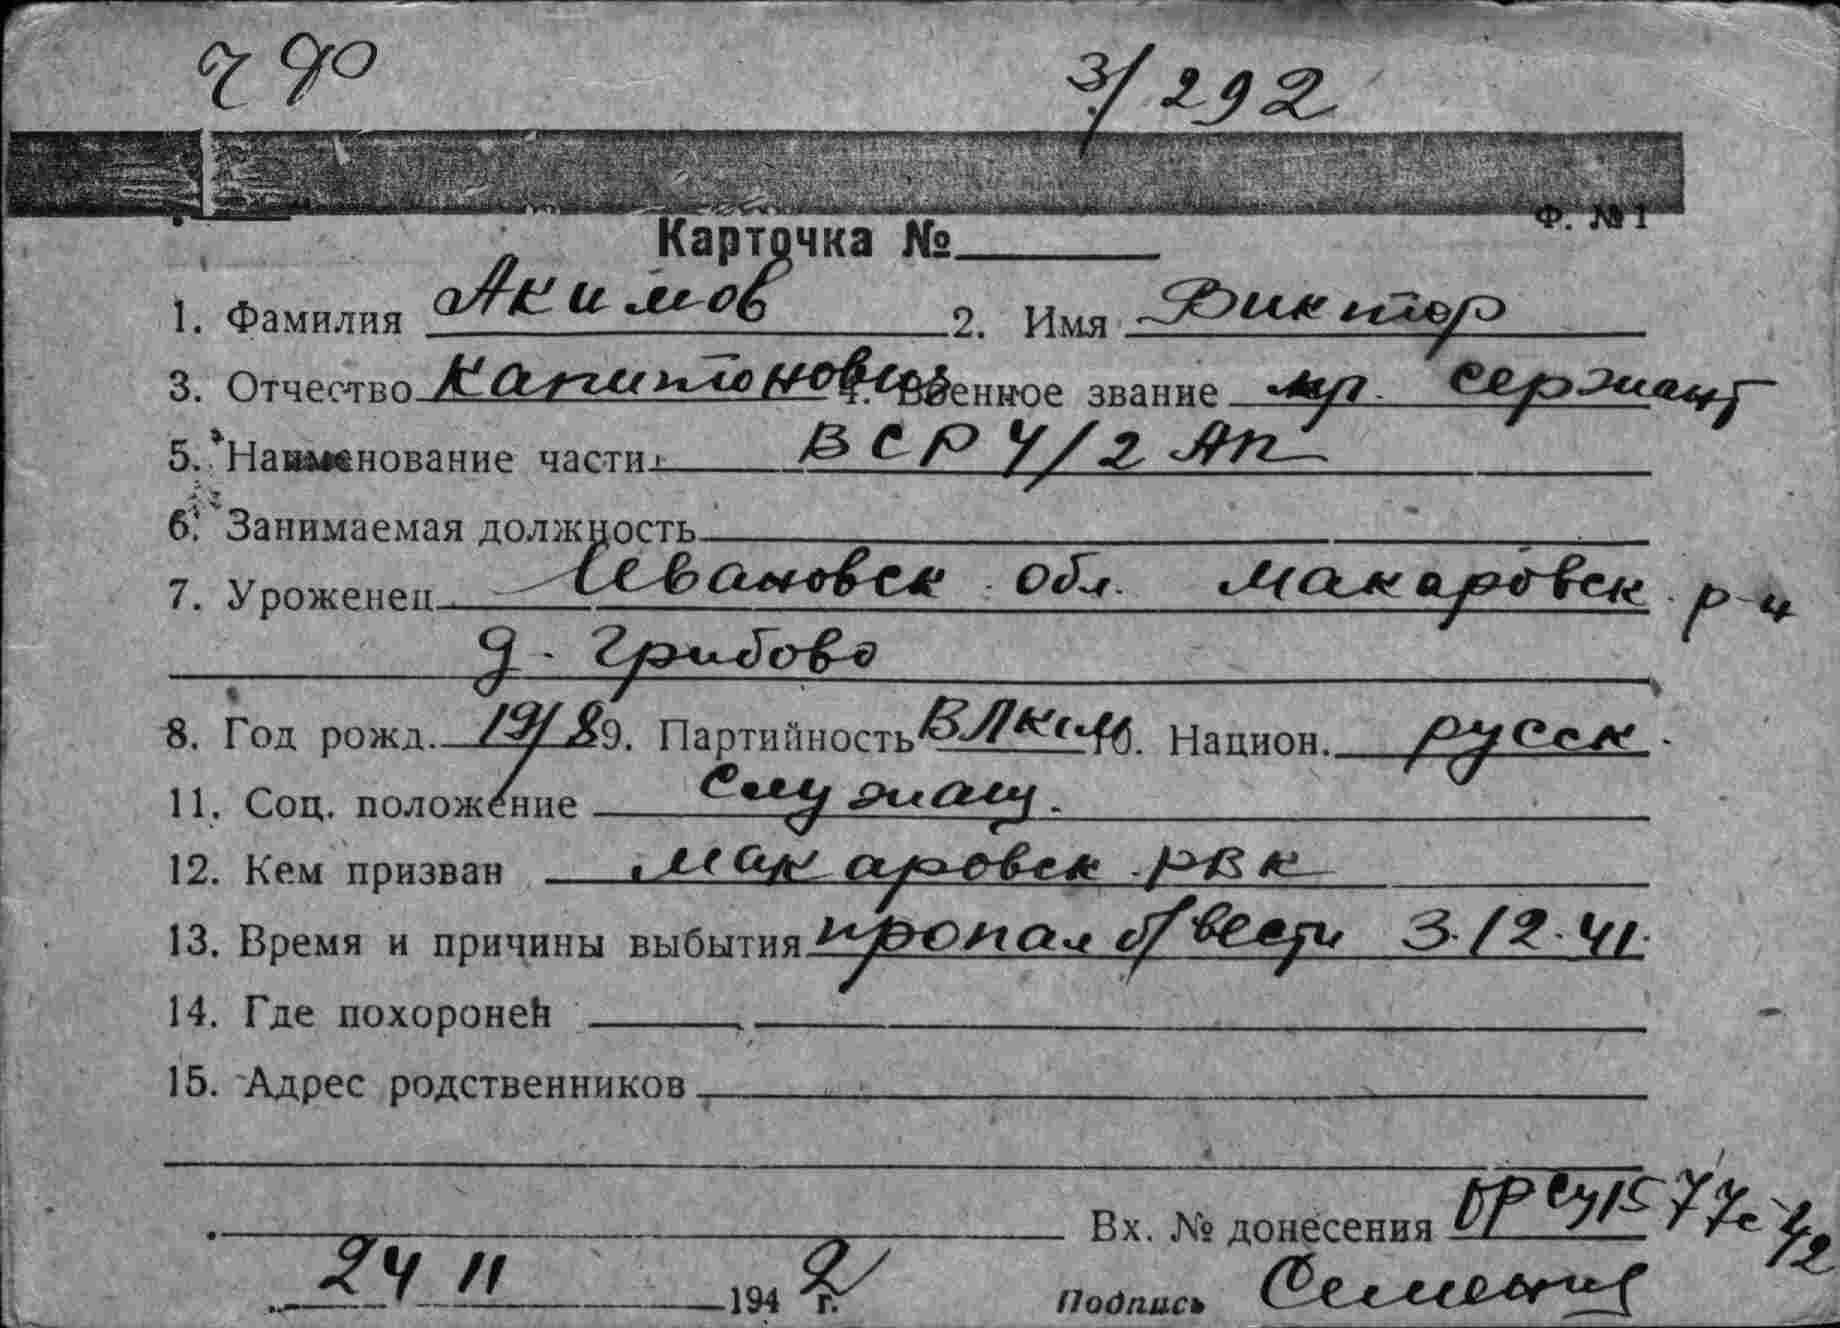 3/292
Ф. № 1
Карточка №
1. Фамилия Акимов 2. Имя Виктор
3. Отчество Капитонович 4. Военное звание мл. сержант
5. Наименование части ВСР 4/2 АП
6. Занимаемая должность
7. Уроженец Ивановск обл. Макаровск р-н
д. Грибово
8. Год рожд. 1918 9. Партийность ВЛКСМ 10. Национ. русск.
11. Соц. положение служащ.
12. Кем призван Макаровск РВК
13. Время и причины выбытия пропал б/вести 3.12.41.
14. Где похоронен
15. Адрес родственников
Вх. № донесения
24 11 1942 г. Подпись